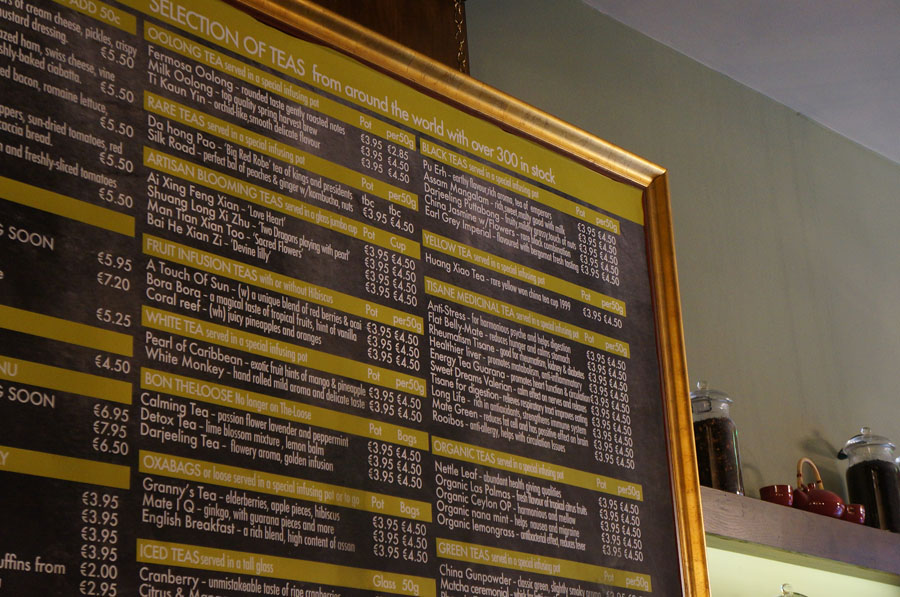 ADD 50c
rs of cream cheese, pickles, crispy
ustard dressing.
€5.50
azed ham, swiss cheese, vine
shly-baked ciabatta.
€5.50
ed bacon, romaine lettuce,
€5.50
ppers, sun-dried tomatoes, red
caccia bread.
€5.50
n and freshly-sliced tomatoes
€5.50
G SOON
€5.95
€7.20
€5.25
€4.50
NU
G SOON
€6.95
€7.95
€6.50
Y
€3.95
€3.95
€3.95
€3.95
uffins from €2.00
€2.95
SELECTION OF TEAS from around the world with over 300 in stock
OOLONG TEA served in a special infusing pot Pot per50g
Fermosa Oolong - rounded taste gently roasted notes €3.95 €2.85
Milk Oolong - top quality spring harvest brew €3.95 €4.50
Ti Kaun Yin - orchid-like, smooth delicate flavour €3.95 €4.50
RARE TEAS served in a special infusing pot Pot per50g
Da hong Pao - 'Big Red Robe' tea of kings and presidents tbc tbc
Silk Road - perfect ball of peaches & ginger w/kambucha, nuts €3.95 €4.50
ARTISAN BLOOMING TEAS served in a glass jumbo cup Pot Cup
Ai Xing Feng Xian - 'Love Heart' €3.95 €4.50
Shuang Long Xi Zhu - 'Two Dragons playing with pearl' €3.95 €4.50
Man Tian Xian Too - 'Sacred Flowers' €3.95 €4.50
Bai He Xian Zi - 'Devine lilly' €3.95 €4.50
FRUIT INFUSION TEAS with or without Hibiscus Pot per50g
A Touch Of Sun - (w) a unique blend of red berries & acai €3.95 €4.50
Bora Bora - a magical taste of tropical fruits, hint of vanilla €3.95 €4.50
Coral reef - (wh) juicy pineapples and oranges €3.95 €4.50
WHITE TEA served in a special infusing pot Pot per50g
Pearl of Caribbean - exotic fruit hints of mango & pineapple €3.95 €4.50
White Monkey - hand rolled mild aroma and delicate taste €3.95 €4.50
BON THE-LOOSE No longer on The-Loose Pot Bags
Calming Tea - passion flower lavender and peppermint €3.95 €4.50
Detox Tea - lime blossom mixture, lemon balm €3.95 €4.50
Darjeeling Tea - flowery aroma, golden infusion €3.95 €4.50
OXABAGS or loose served in a special infusing pot or to go Pot Bags
Granny's Tea - elderberries, apple pieces, hibiscus €3.95 €4.50
Mate I Q - ginkgo, with guarana pieces and more €3.95 €4.50
English Breakfast - a rich blend, high content of assan €3.95 €4.50
ICED TEAS served in a tall glass Glass 50g
Cranberry - unmistakeable taste of ripe cranberries €3.95 €4.50
Citrus &
BLACK TEAS served in a special infusing pot Pot per50g
Pu Erh - earthy flavour, rich aroma, tea of emperors €3.95 €4.50
Assam Mangalam - rich sweet malty good with milk €3.95 €4.50
Darjeeling Puttabong - fruity, mildly grassy, touch of nuts €3.95 €4.50
China Jasmine w/Flowers - rare black combination €3.95 €4.50
Earl Grey Imperial - flavoured with bergamot fresh tasting €3.95 €4.50
YELLOW TEA served in a special infusing pot Pot per50g
Huang Xiao Tea - rare yellow won china tea cup 1999 €3.95 €4.50
TISANE MEDICINAL TEA served in a special infusing pot Pot per50g
Anti-Stress - for harmonious psyche and helps digestion €3.95 €4.50
Flat Belly-Mate - reduces hunger and calms stomach €3.95 €4.50
Rheumatism Tisane - good for rheumatism, kidney & diabetes €3.95 €4.50
Healthier liver - promotes metabolism, anti-inflammatory €3.95 €4.50
Energy Tea Guarana - promotes heart function & circulation €3.95 €4.50
Sweet Dreams Valerian - calm effect on nerves and relaxes €3.95 €4.50
Tisane for digestion - relieves respiratory tract improves eating €3.95 €4.50
Long Life - rich in antioxidants, strengthens immune system €3.95 €4.50
Mate Green - reduces fat cell and has positive effect on brain €3.95 €4.50
Rooibos - anti-allergy, helps with circulation issues €3.95 €4.50
ORGANIC TEAS served in a special infusing pot Pot per50g
Nettle Leaf - abundant health giving qualities €3.95 €4.50
Organic Las Palmas - fresh flavour of tropical citrus fruits €3.95 €4.50
Organic Ceylon OP - harmonious and mellow €3.95 €4.50
Organic nana mint - helps nausea and migraine €3.95 €4.50
Organic lemongrass - antibacterial effect, reduces fever €3.95 €4.50
GREEN TEAS served in a special infusing pot Pot per50g
China Gunpowder - classic green, slightly smoky
Matcha ceremonial